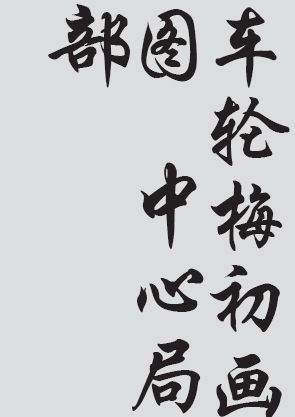 车轮梅初画
图 中心局
部